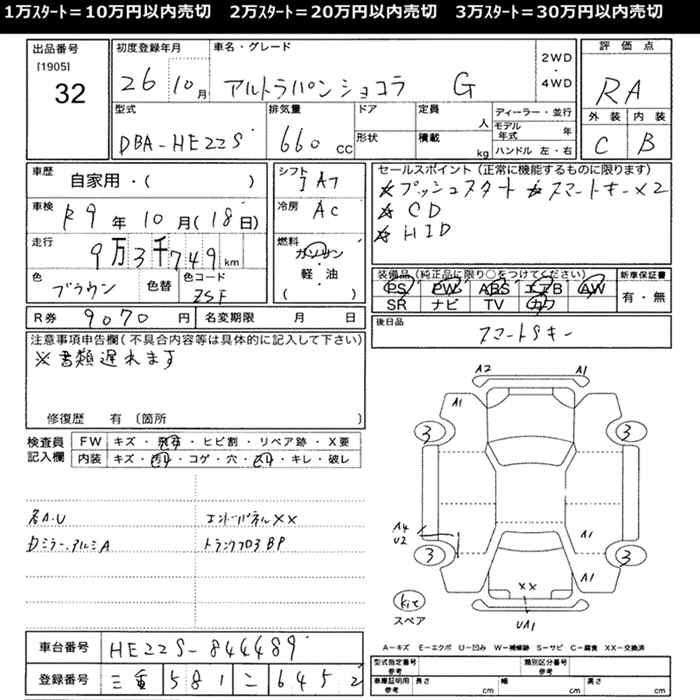 1万スタート＝10万円以内売切　2万スタート＝20万円以内売切　3万スタート＝30万円以内売切
出品番号
[1905]
32
初度登録年月
26 10月
車名・グレード
アルトラパンショコラ G
2WD
・
4WD
評価点
RA
外装 内装
C B
型式
DBA-HE22S
排気量
660 cc
ドア
形状
定員
人
積載
kg
ディーラー・並行
モデル年式 年
ハンドル 左・右
車歴
自家用・( )
車検
R9年10月(18日)
走行
9万3千749km
色
ブラウン
色替
色コード
ZSF
シフト
冷房
AC
燃料
ガソリン
・
軽・油
( )
セールスポイント(正常に機能するものに限ります)
☆プッシュスタート ☆スマートキー×2
☆CD
☆HID
装備品(純正品に限り○をつけてください)
PS PW ABS エアB AW
SR ナビ TV カワ
新車保証書
有・無
R券 9070円
名変期限 月 日
後日品
スマートSキー
注意事項申告欄(不具合内容等は具体的に記入して下さい)
※書類遅れます
修復歴 有 〔箇所 〕
検査員記入欄
FW キズ・飛石・ヒビ割・リペア跡・X要
内装 キズ・汚れ・コゲ・穴・スレ・キレ・破レ
各A・U
Dミラー、アルミA
エンドパネルXX
トランクフロアBP
A2 A1
A1
3 3
A4
U2
A1
3 3
A1
XX
UA1
kit
スペア
車台番号 HE22S-844489
登録番号 三重 581 こ 6452
A－キズ E－エクボ U－凹み W－補修跡 S－サビ C－腐食 XX－交換済
型式指定番号
参考
類別区分番号
参考
車庫証明用
参考
長さ cm 幅 cm 高さ cm